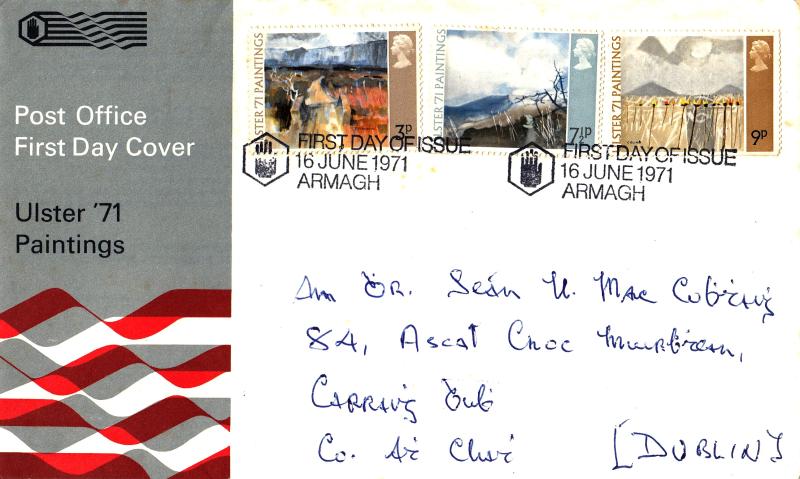 Post Office
First Day Cover
Ulster '71
Paintings
ULSTER '71 PAINTINGS
3p
ULSTER '71 PAINTINGS
7½p
ULSTER '71 PAINTINGS
9p
FIRST DAY OF ISSUE
16 JUNE 1971
ARMAGH
FIRST DAY OF ISSUE
16 JUNE 1971
ARMAGH
Seán Mac
84, Ascal Cnoc
Co.
[DUBLIN]